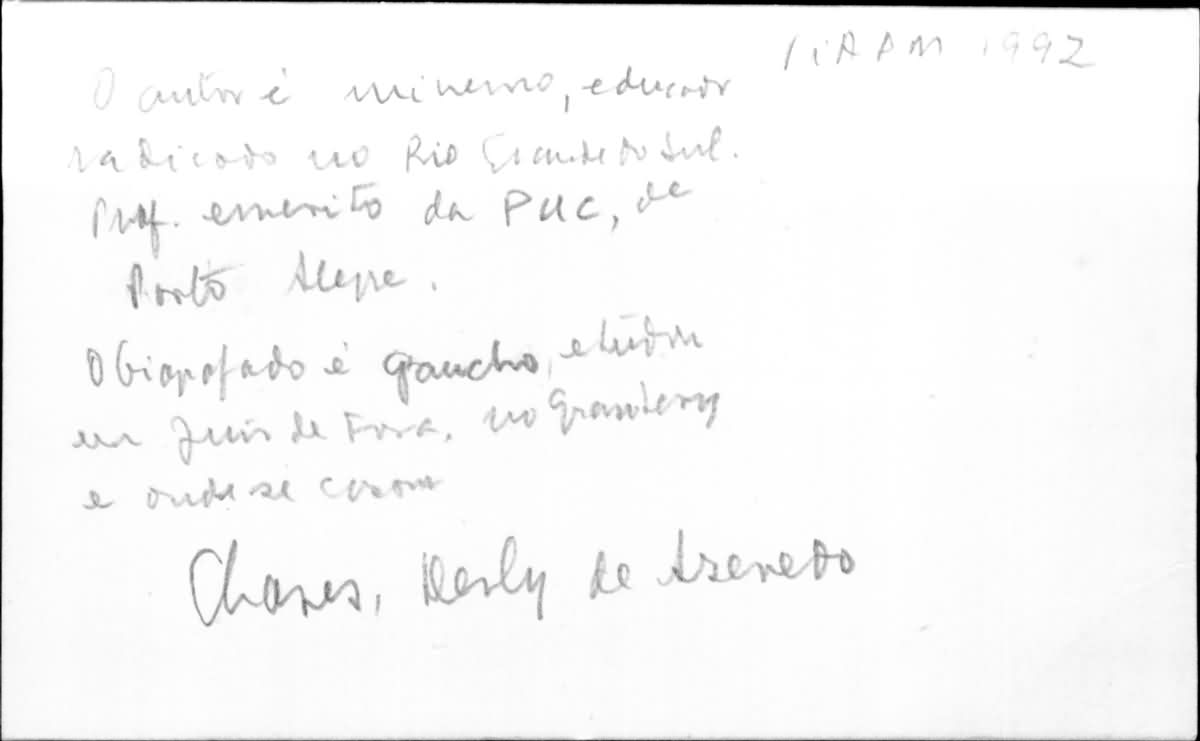 1992
O autor é mineiro, educador
radicado no Rio Grande do Sul.
Prof. emerito da PUC, de
Porto Alegre.
O biografado é gaucho, estudou
em Juiz de Fora, no Granbery
e onde se casou
Chaves, Derly de Azevedo